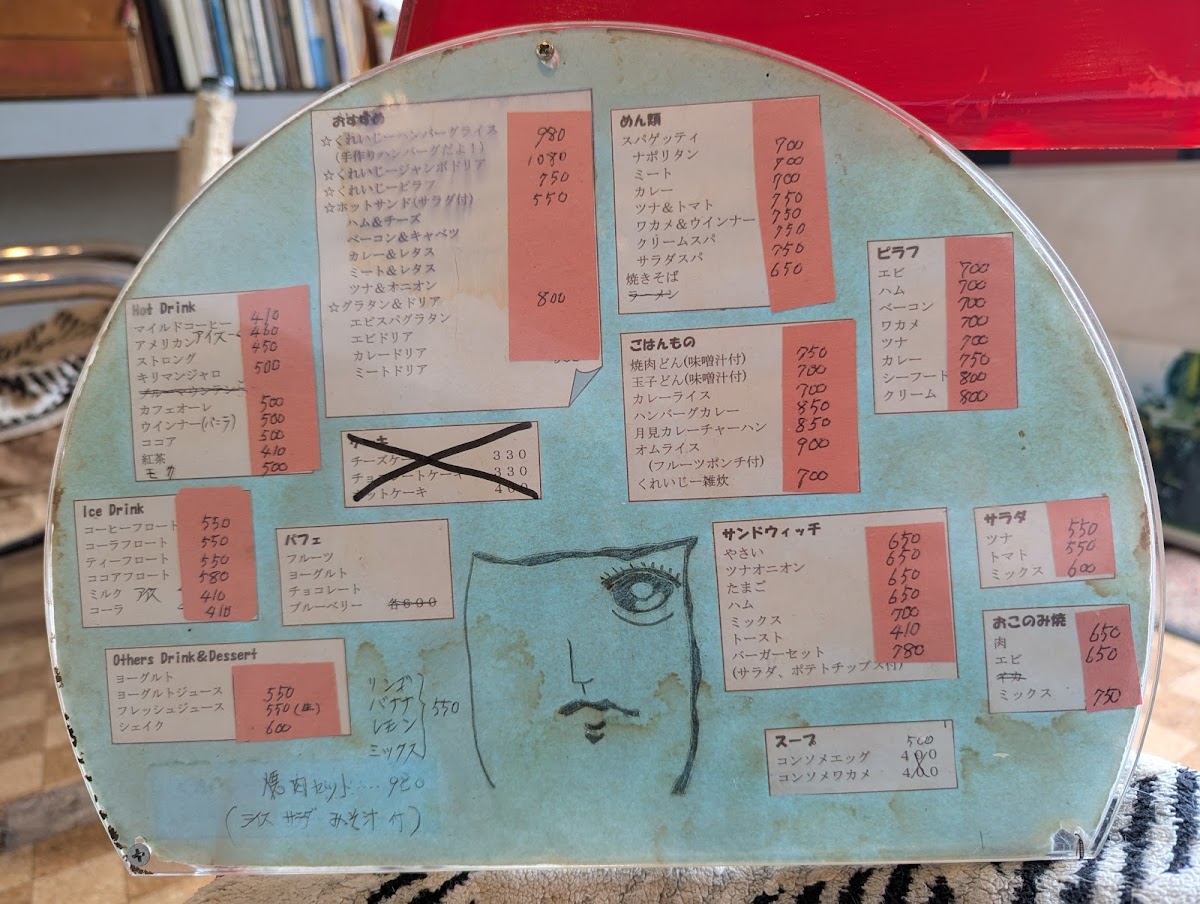 おすすめ
☆くれいじーハンバーグライス 980
(手作りハンバーグだよ!)
☆くれいじージャンボドリア 1080
☆くれいじーピラフ 750
☆ホットサンド(サラダ付) 550
ハム&チーズ
ベーコン&キャベツ
カレー&レタス
ミート&レタス
ツナ&オニオン
☆グラタン&ドリア 800
エビスパグラタン
エビドリア
カレードリア
ミートドリア
めん類
スパゲッティ
ナポリタン 700
ミート 700
カレー 700
ツナ&トマト 750
ワカメ&ウインナー 750
クリームスパ 750
サラダスパ 750
焼きそば 650
ラーメン
ピラフ
エビ 700
ハム 700
ベーコン 700
ワカメ 700
ツナ 700
カレー 750
シーフード 800
クリーム 800
Hot Drink
マイルドコーヒー 410
アメリカン アイス 460
ストロング 450
キリマンジャロ 500
ブルーマウンテン
カフェオーレ 500
ウインナー(バニラ) 500
ココア 500
紅茶 410
モカ 500
ごはんもの
焼肉どん(味噌汁付) 750
玉子どん(味噌汁付) 700
カレーライス 700
ハンバーグカレー 850
月見カレーチャーハン 850
オムライス 900
(フルーツポンチ付)
くれいじー雑炊 700
ケーキ
チーズケーキ 330
チョコレートケーキ 330
ホットケーキ 400
Ice Drink
コーヒーフロート 550
コーラフロート 550
ティーフロート 550
ココアフロート 580
ミルク 410
コーラ 410
パフェ
フルーツ
ヨーグルト
チョコレート
ブルーベリー 各600
サンドウィッチ
やさい 650
ツナオニオン 650
たまご 650
ハム 650
ミックス 700
トースト 410
バーガーセット 780
(サラダ、ポテトチップス付)
サラダ
ツナ 550
トマト 550
ミックス 600
おこのみ焼
肉 650
エビ 650
イカ
ミックス 750
Others Drink&Dessert
ヨーグルト
ヨーグルトジュース 550
フレッシュジュース 550(生)
シェイク 600
リンゴ
バナナ
レモン
ミックス
550
スープ 500
コンソメエッグ 400
コンソメワカメ 400
焼肉セット...920
(ライス サラダ みそ汁 付)